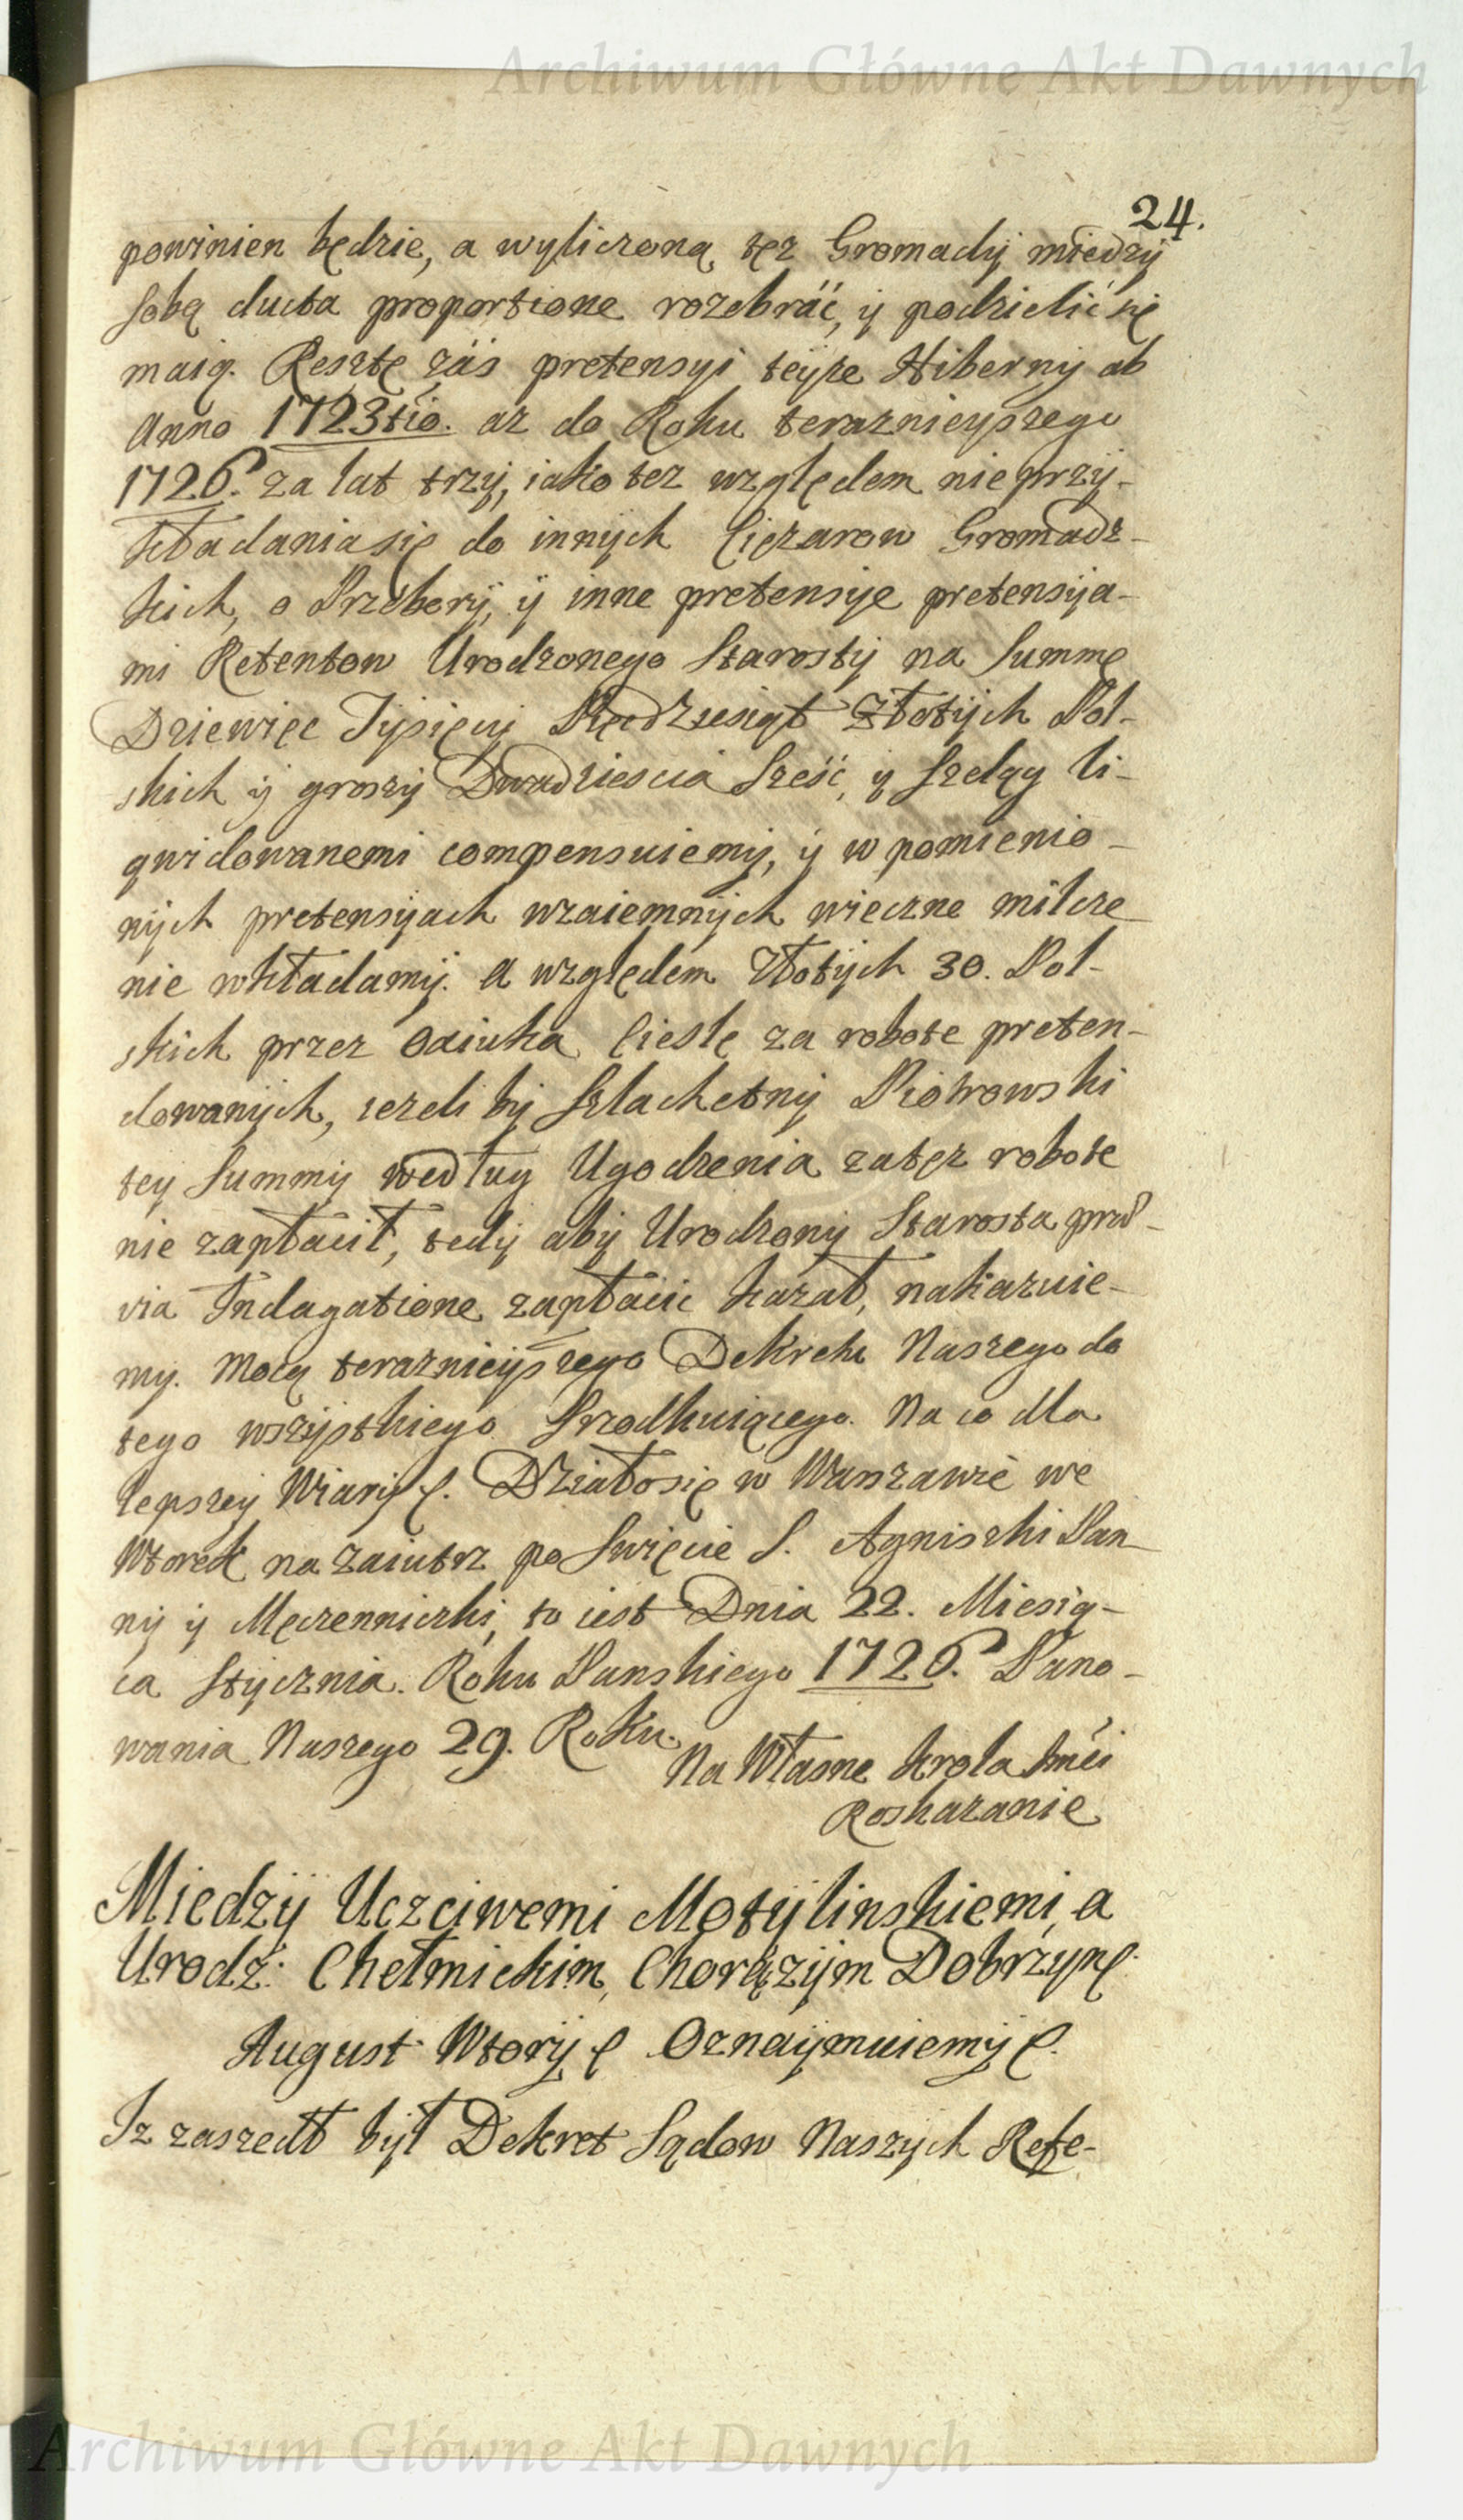 Archiwum Główne Akt Dawnych
24.
powinien będzie, a wyliczoną tęz Gromady między
sobą ducta proportione rozebráć, y podzielić się
maią. Resztę záś pretensyi teyze Hiberny ab
Anno 1723tio. az do Roku teraznieyszego
1726. za lat trzy, iako tez względem nie przy-
kładania się do innych Cięzarow Gromadz-
kich, o Przebory, y inne pretensye pretensya-
mi Retentow Urodzonego Starosty na Summę
Dziewięc Tysięcy Pięcdziesiąt Złotych Pol-
skich y groszy Dwadziescia Sześć, y Szeląg li-
qwidowanemi compensuiemy, y w pomienio-
nych pretensyach wzaiemnych wieczne milcze-
nie wkładamy. A względem Złotych 30. Pol-
skich przez Cieslę za robote preten-
dowanych, iezeli by Szlachetny Piotrowski
tey Summy według Ugodzenia zatęz robote
nie zapłacił, tedy aby Urodzony Starosta præ-
via Indagatione zapłacic kazał, nakazuie-
my. Mocą teraznieyszego Dekretu Naszego do
tego wszystkiego Srzodkuiącego. Na co dla
lepszey Wiary &. Działo się w Warszawie we
Wtorek na zaiutrz po Swięcie S. Agniszki Pan-
ny y Męczenniczki, to iest Dnia 22. Miesią-
ca Stycznia. Roku Panskiego 1726. Pano-
wania Naszego 29. Roku.
Na Własne krola Jmći
Roskazanie
Miedzy Uczciwemi Motylinskiemi, a
Urodz: Chełmickim, Chorązym Dobrzyn&.
August Wtory & Oznaymuiemy &.
Iz zaszedł był Dekret Sądow Naszych Refe-
Archiwum Główne Akt Dawnych